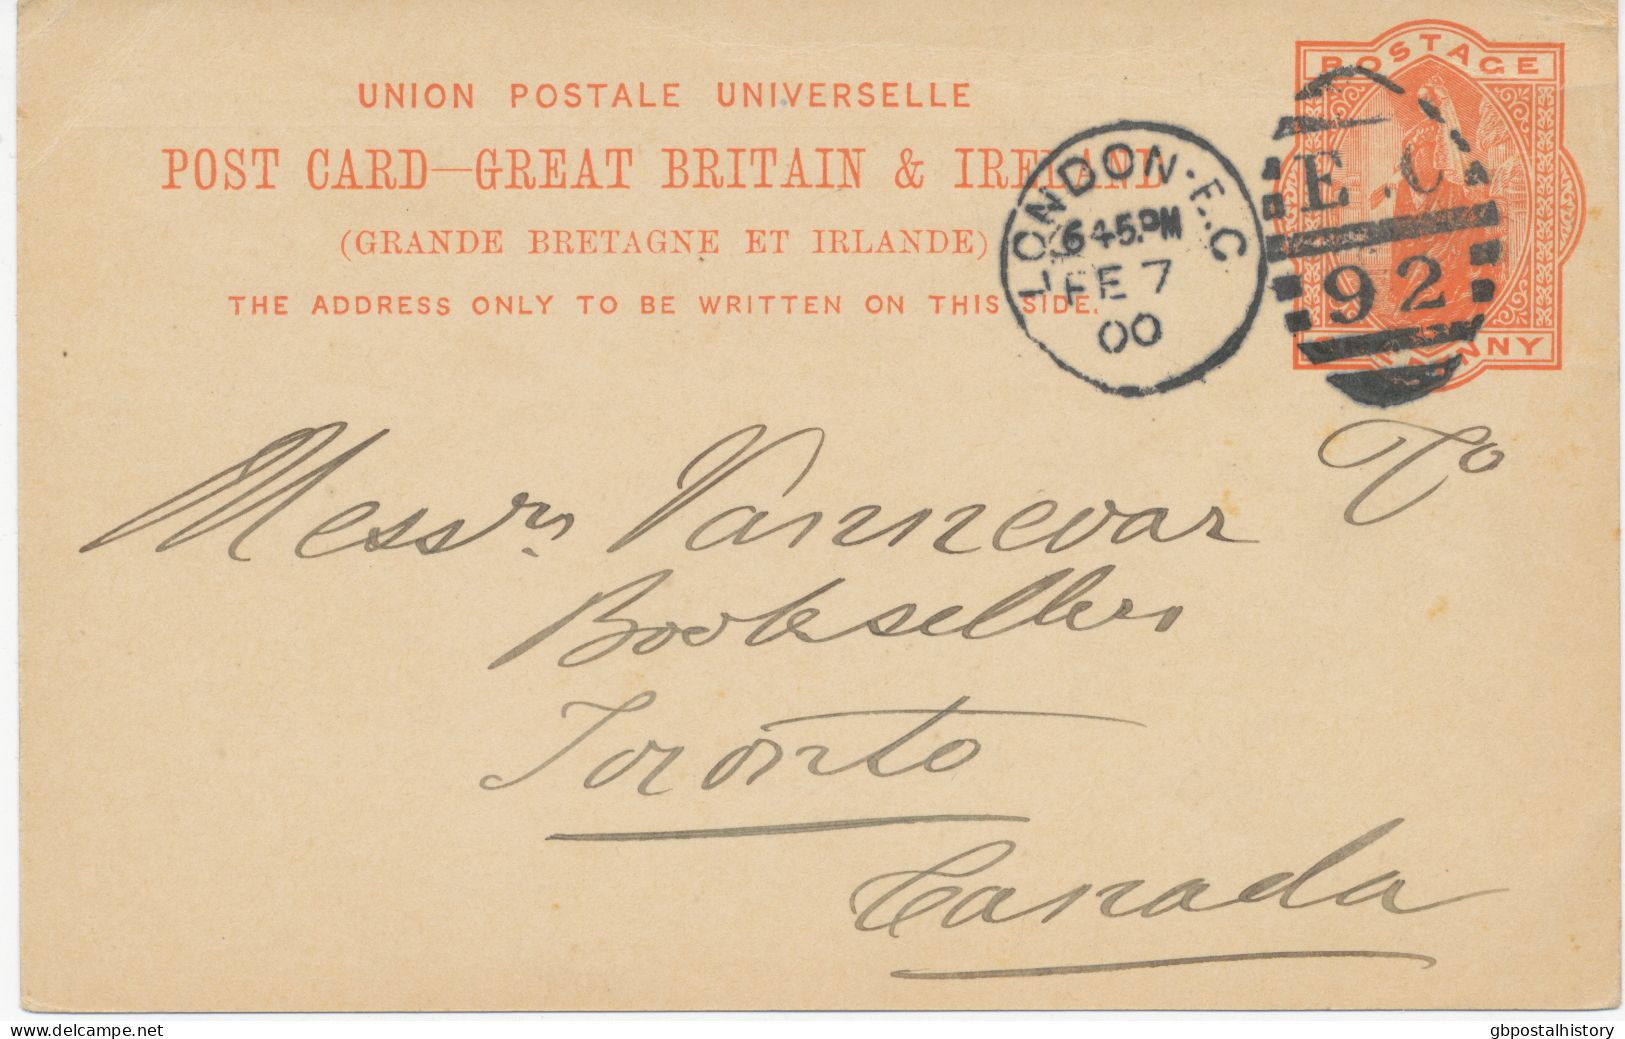 UNION POSTALE UNIVERSELLE
POST CARD—GREAT BRITAIN & IRELAND
(GRANDE BRETAGNE ET IRLANDE)
THE ADDRESS ONLY TO BE WRITTEN ON THIS SIDE.
POSTAGE
ONE PENNY
LONDON·E.C
645.PM
FE 7
00
E.C
92
Messrs Vannevar Co
Booksellers
Toronto
Canada
www.delcampe.net
gbpostalhistory